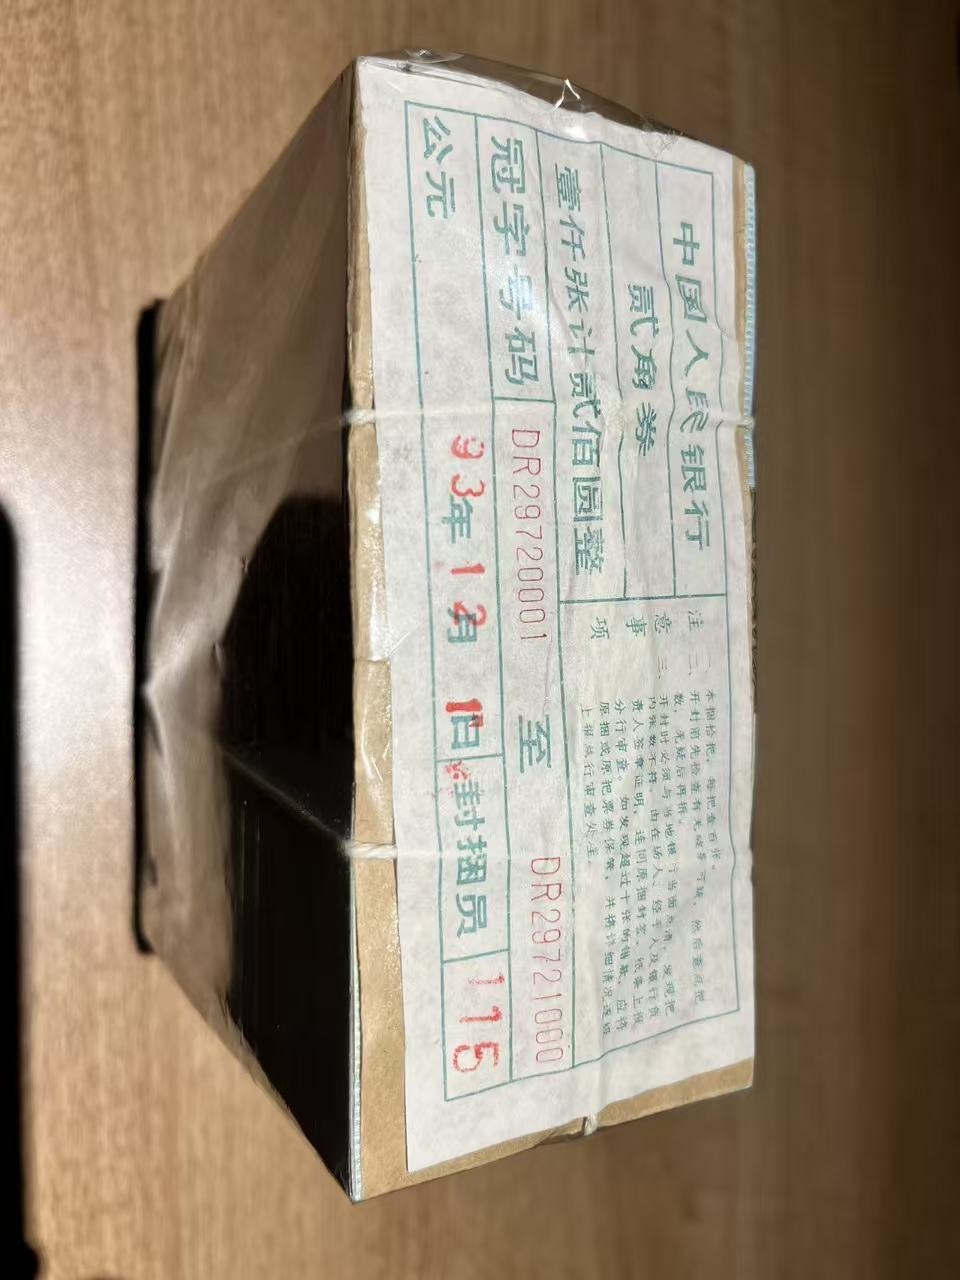 中国人民银行
贰角券
壹仟张计贰佰圆整
冠字号码 DR29720001 至 DR29721000
公元 93年12月1日 封捆员 115
注意事项
一、本捆拾把，每把壹百张。
二、开封前先检查有无破券可疑，然后查点把
数，无疑后再拆。
三、开封时必须与当地银行当面点清，发现把
内张数不符，由在场人、经手人及银行负
责人签章证明，连同原捆封签、纸条上报
分行审查。如发现超过十张的错款，应将
原捆或原把票券保管，并将详细情况逐级
上报总行审查处理